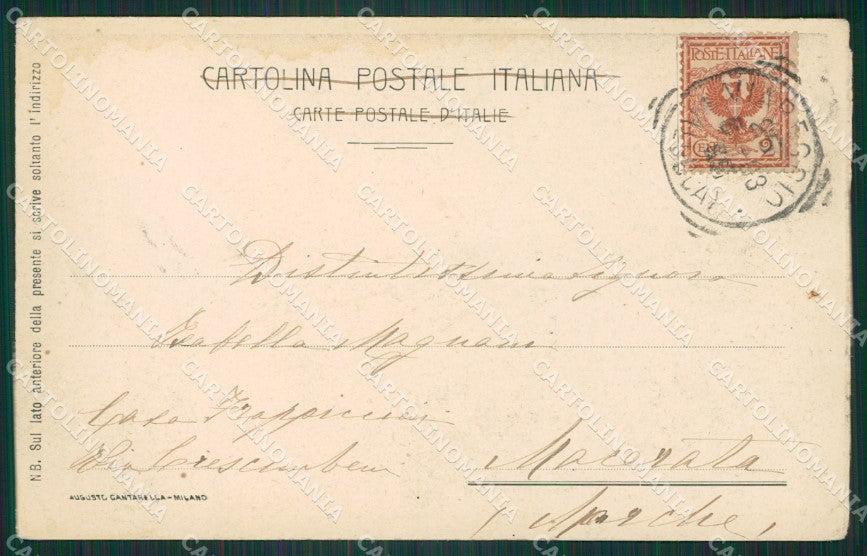 CARTOLINA POSTALE ITALIANA
CARTE POSTALE D'ITALIE
POSTE ITALIANE
REGGIO
Distintissima Signora
Isabella Magnani
Casa
Via Crescimbeni
Macerata
(Marche)
NB. Sul lato anteriore della presente si scrive soltanto l'indirizzo
AUGUSTO CANTARELLA-MILANO
CARTOLINOMANIA